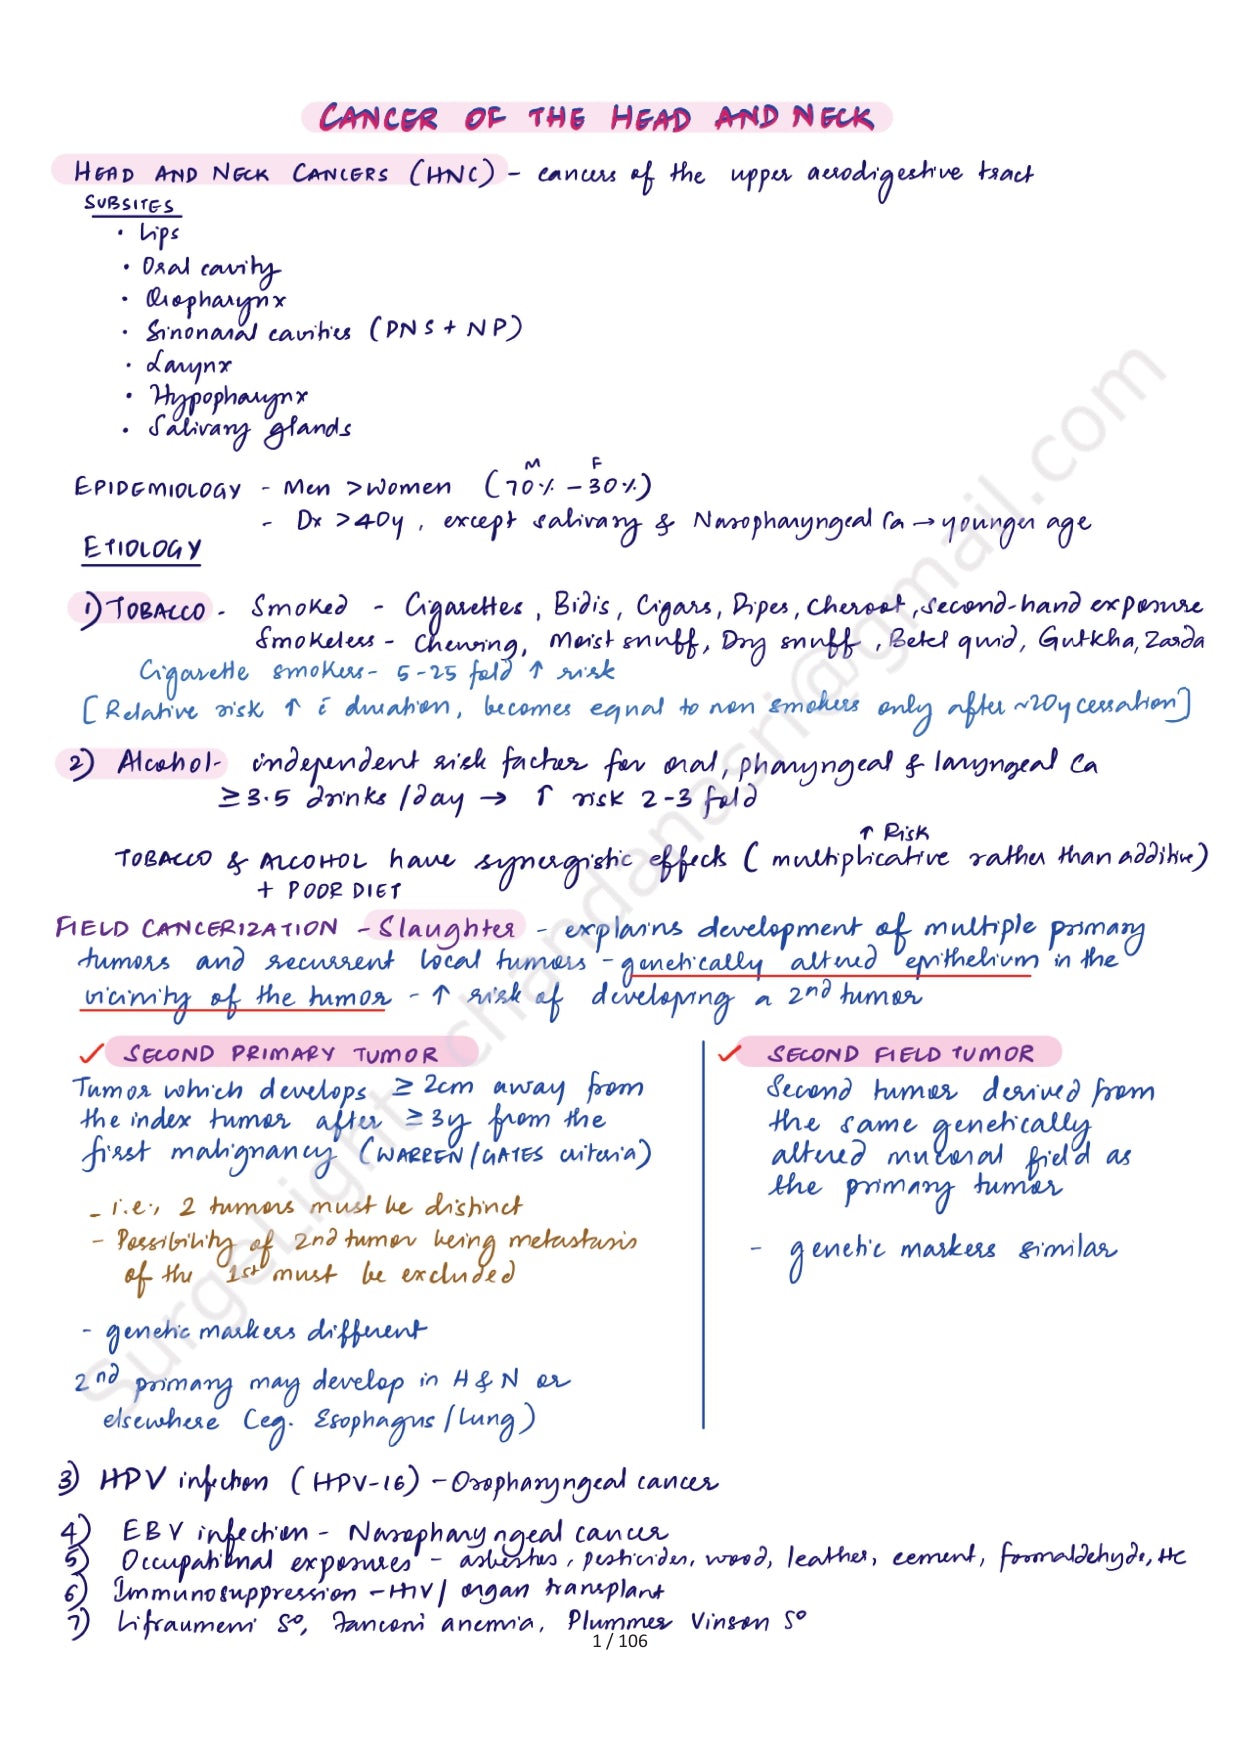 CANCER OF THE HEAD AND NECK
HEAD AND NECK CANCERS (HNC) - cancers of the upper aerodigestive tract
SUBSITES
• Lips
• Oral cavity
• Oropharynx
• Sinonasal cavities (PNS + NP)
• Larynx
• Hypopharynx
• Salivary glands
M F
EPIDEMIOLOGY - Men > Women (70% - 30%)
- Dx >40y, except salivary & Nasopharyngeal Ca → younger age
ETIOLOGY
1) TOBACCO - Smoked - Cigarettes, Bidis, Cigars, Pipes, Cheroot, Second-hand exposure
Smokeless - Chewing, Moist snuff, Dry snuff, Betel quid, Gutkha, Zarda
Cigarette smokers - 5-25 fold ↑ risk
[Relative risk ↑ c̄ duration, becomes equal to non smokers only after ~20y cessation]
2) Alcohol - independent risk factor for oral, pharyngeal & laryngeal Ca
≥3.5 drinks/day → ↑ risk 2-3 fold
↑ Risk
TOBACCO & ALCOHOL have synergistic effects (multiplicative rather than additive)
+ POOR DIET
FIELD CANCERIZATION - Slaughter - explains development of multiple primary
tumors and recurrent local tumors - genetically altered epithelium in the
vicinity of the tumor - ↑ risk of developing a 2nd tumor
✓ SECOND PRIMARY TUMOR
Tumor which develops ≥ 2cm away from
the index tumor after ≥3y from the
first malignancy (WARREN/GATES criteria)
- i.e., 2 tumors must be distinct
- Possibility of 2nd tumor being metastasis
of the 1st must be excluded
- genetic markers different
2nd primary may develop in H & N or
elsewhere (eg. Esophagus/Lung)
✓ SECOND FIELD TUMOR
Second tumor derived from
the same genetically
altered mucosal field as
the primary tumor
- genetic markers similar
3) HPV infection (HPV-16) - Oropharyngeal cancer
4) EBV infection - Nasopharyngeal cancer
5) Occupational exposures - asbestos, pesticides, wood, leather, cement, formaldehyde, HC
6) Immunosuppression - HIV/ organ transplant
7) Lifraumeni S°, Fanconi anemia, Plummer Vinson S°
1 / 106
SurgeLight chandanasri@gmail.com